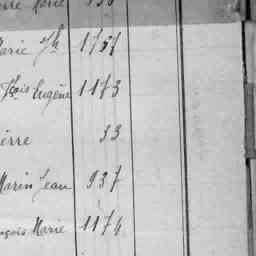 Marie
arie Jh 1737
Fçois Eugène 1173
ierre 33
Marin Jean 937
nçois Marie 1174